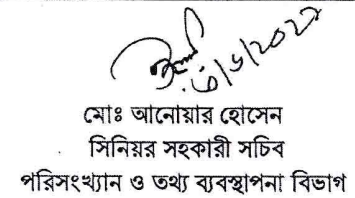 মোঃ আনোয়ার হোসেন
সিনিয়র সহকারী সচিব
পরিসংখ্যান ও তথ্য ব্যবস্থাপনা বিভাগ